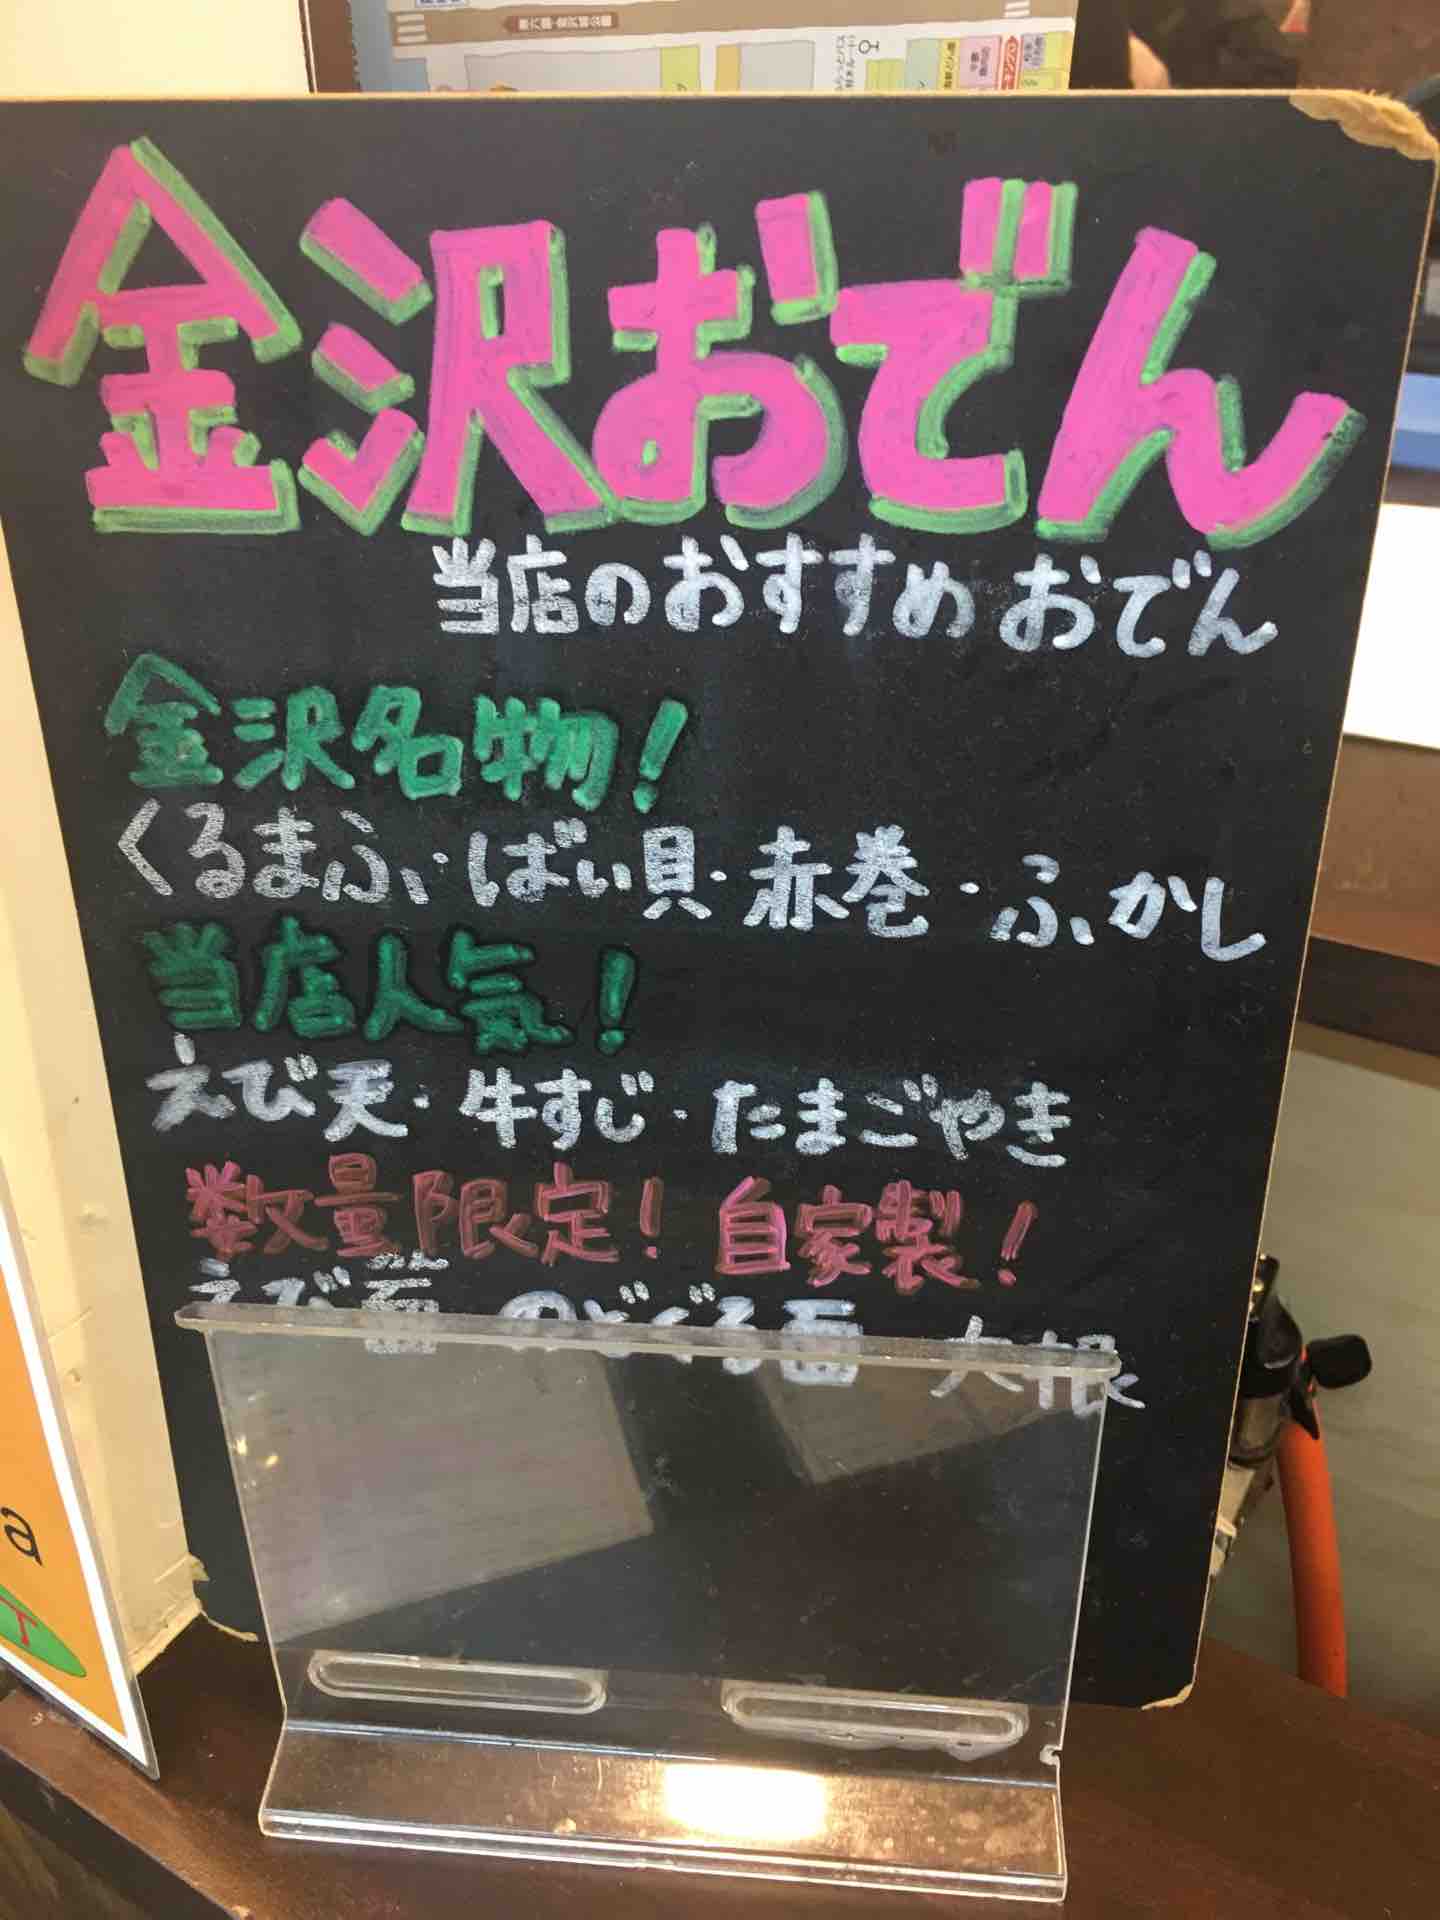 金沢おでん
当店のおすすめ おでん
金沢名物!
くるまふ・ばい貝・赤巻・ふかし
当店人気!
えび天・牛すじ・たまごやき
数量限定!自家製!
えび面 のどぐろ面 大根
a
T